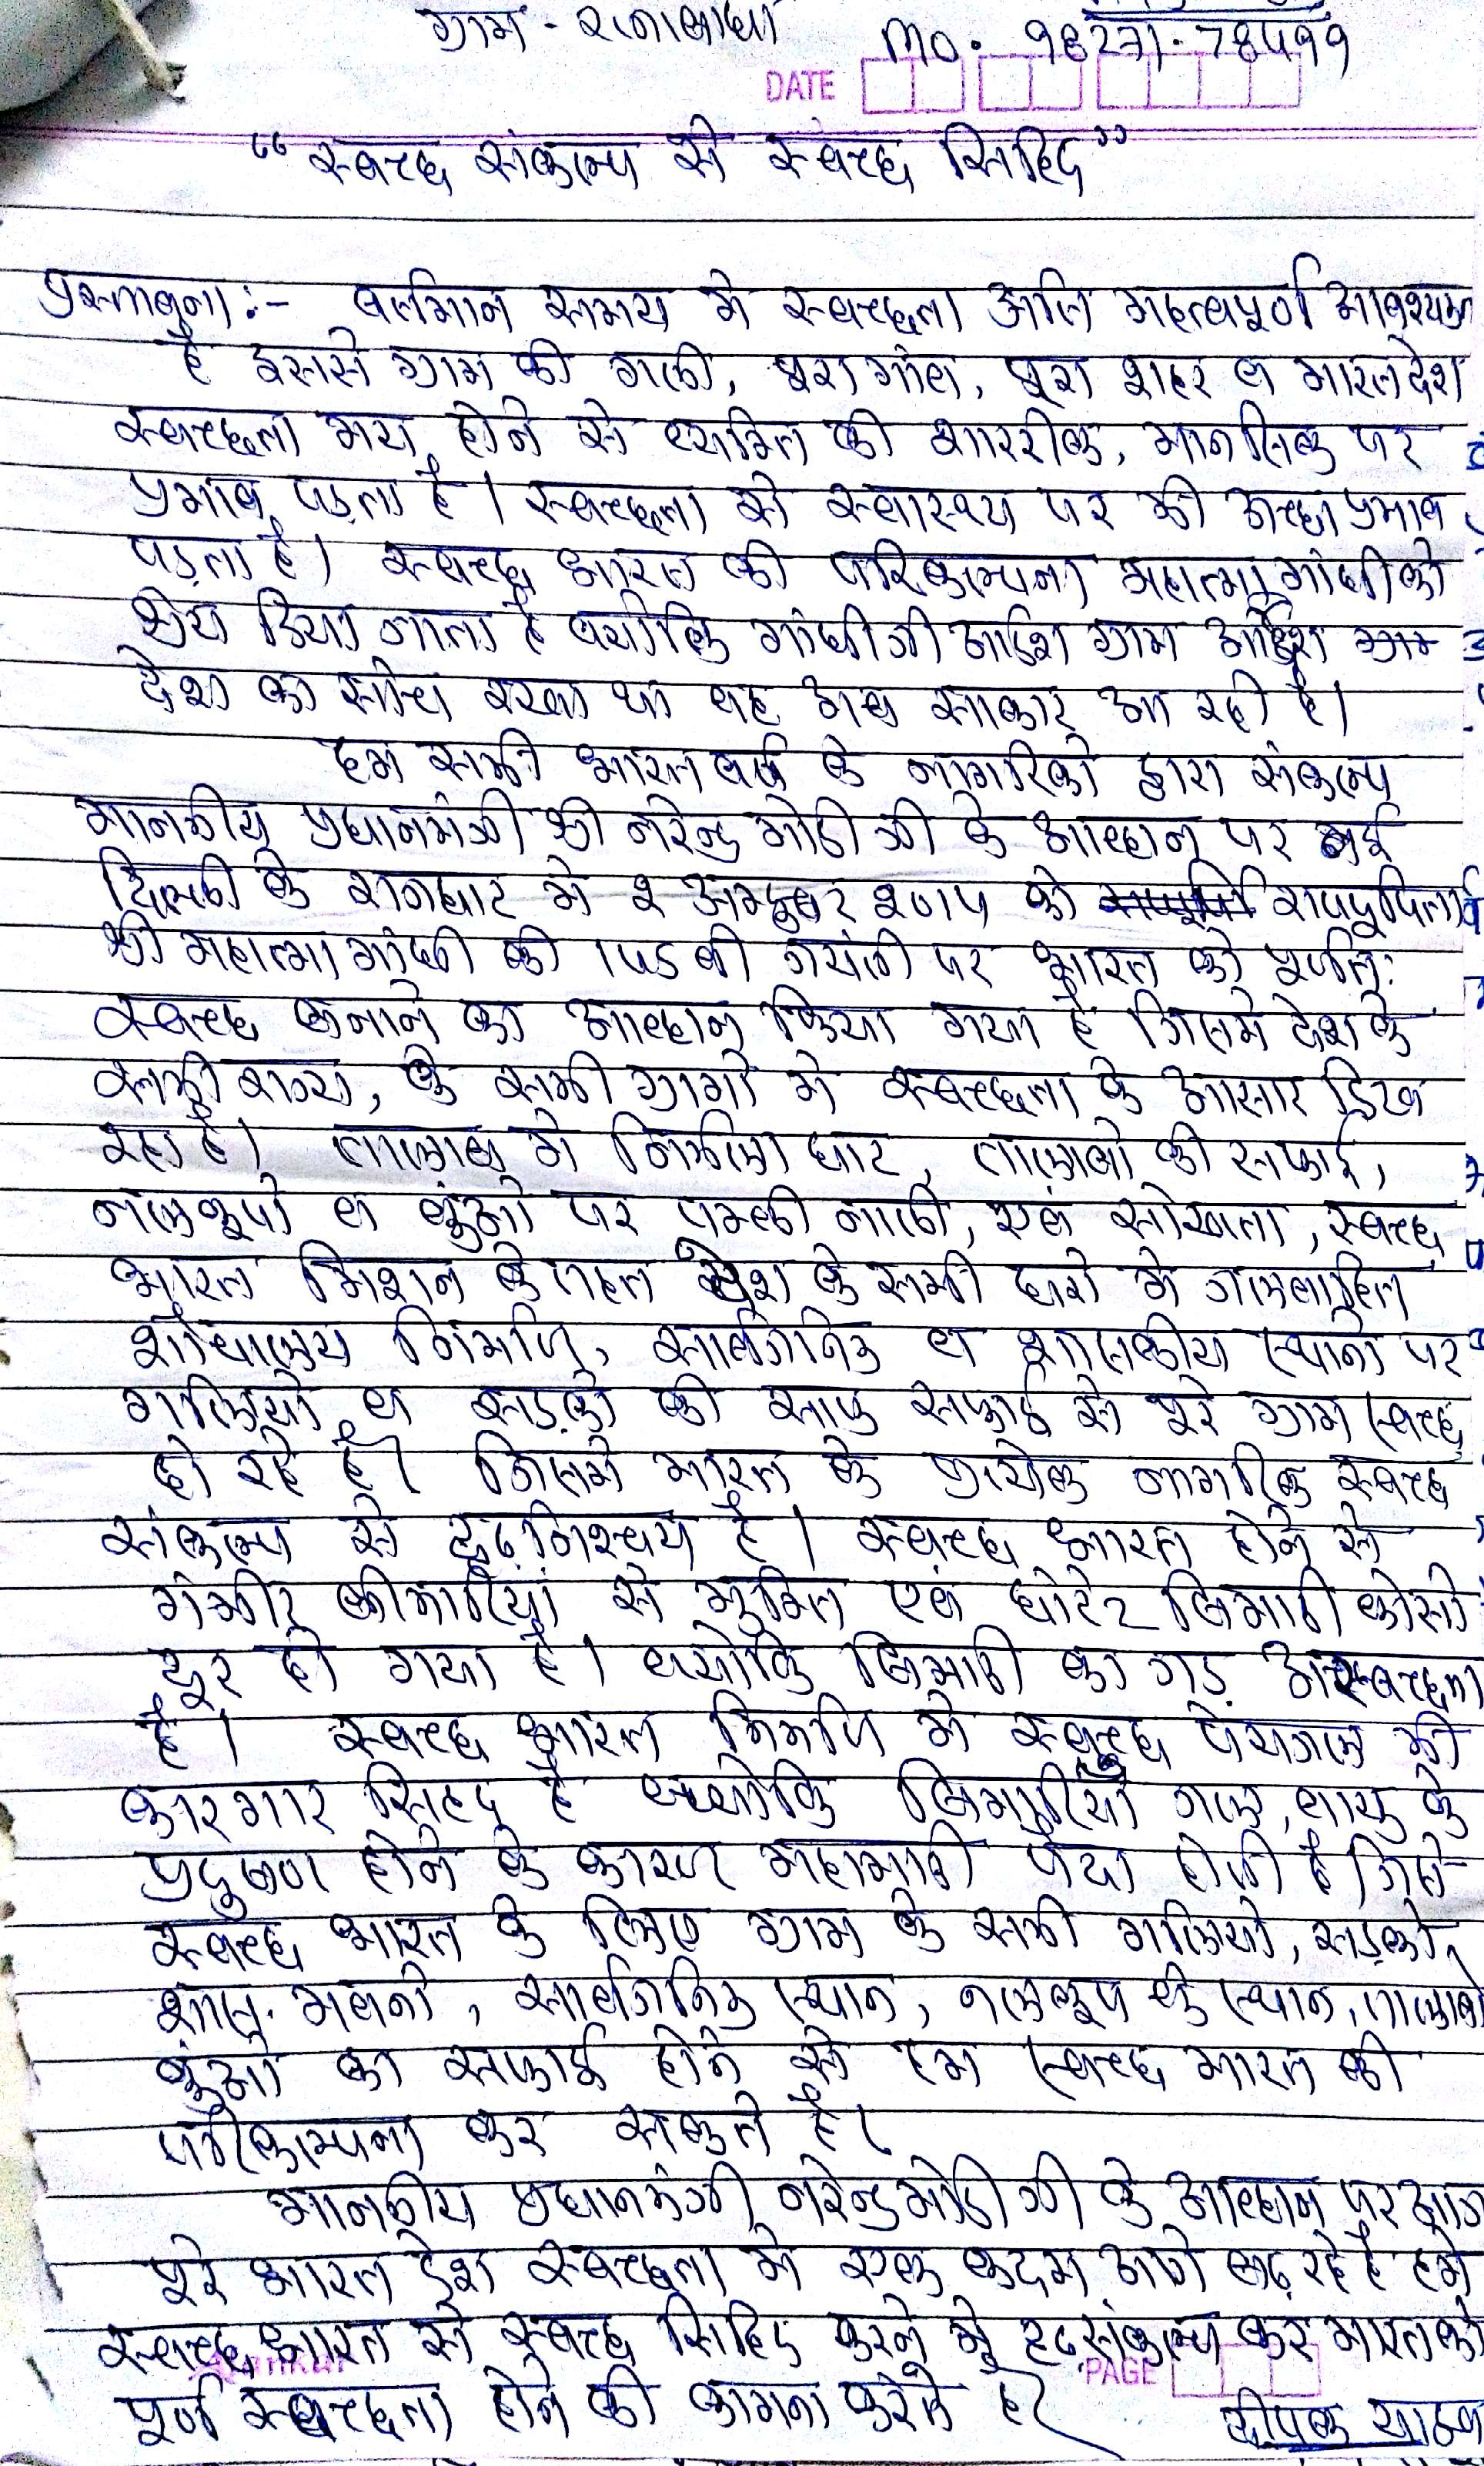 ग्राम - राजाबाधा
Mo. 98271-78599
DATE
"स्वच्छ संकल्प से स्वच्छ सिद्धि"
प्रस्तावना:- वर्तमान समय मे स्वच्छता अति महत्वपूर्ण आवश्यक
है इससे ग्राम की गली, पूरा गांव, पूरा शहर व भारत देश
स्वच्छता मय होने से व्यक्ति की शाररीक, मानसिक पर
प्रभाव पड़ता है। स्वच्छता से स्वास्थ्य पर भी अच्छा प्रभाव
पड़ता है। स्वच्छ भारत की परिकल्पना महात्मा गांधी को
श्रेय दिया जाता है क्योकि गांधी जी आर्दश ग्राम आर्दश
देश का सोच रखा था वह अब साकार आ रही है।
हम सभी भारत वर्ष के नागरिको द्वारा संकल्प
माननीय प्रधानमंत्री श्री नरेन्द्र मोदी जी के आव्हान पर नई
दिल्ली के राजघाट मे 2 अक्टुबर 2014 को राष्ट्रपिता
श्री महात्मा गांधी की 145 वी जयंती पर भारत को पूर्णतः
स्वच्छ बनाने का आव्हान किया गया है जिसमे देश के
सभी राज्य, के सभी ग्रामो मे स्वच्छता के आसार दिख
रहा है। तालाब मे निर्मला घाट, तालाबो की सफाई,
नलकूपो व कुंओ पर पक्की नाली, एवं सोखता, स्वच्छ
भारत मिशन के तहत देश के सभी घरो मे जलवाहित
शौचालय निर्माण, सार्वजनिक व शासकीय स्थानो पर
गलियो व सड़को की साफ सफाई से पूरे ग्राम स्वच्छ
हो रहे है। जिसमे भारत के प्रत्येक नागरिक स्वच्छ
संकल्प से दृढ़निश्चय है। स्वच्छ भारत होने से
गंभीर बीमारियां से मुक्ति एवं छोटे2 बिमारी कोसो
दूर हो गया है। क्योकि बिमारी का जड़ अस्वच्छता
है। स्वच्छ भारत निर्माण मे स्वच्छ पेयजल भी
कारगार सिद्द है क्योकि बिमारीयाँ जल, वायु के
प्रदुषण होने के कारण महामारी पैदा होती है जिसे
स्वच्छ भारत के लिए ग्राम के सभी गलियो, सड़को,
शास. भवनो, सार्वजनिक स्थान, नलकूप के स्थान, तालाबो
कुंओ का सफाई होने से हम स्वच्छ भारत की
परीकल्पना कर सकते है।
माननीय प्रधानमंत्री नरेन्द्र मोदी जी के आव्हान पर आज
पूरे भारत देश स्वच्छता मे एक कदम आगे बढ़ रहे है हमे
स्वच्छ भारत से स्वच्छ सिद्दि करने मे दृढ़ संकल्प कर भारत को
पूर्ण स्वच्छता होने की कामना करते है।
PAGE
दीपक यादव